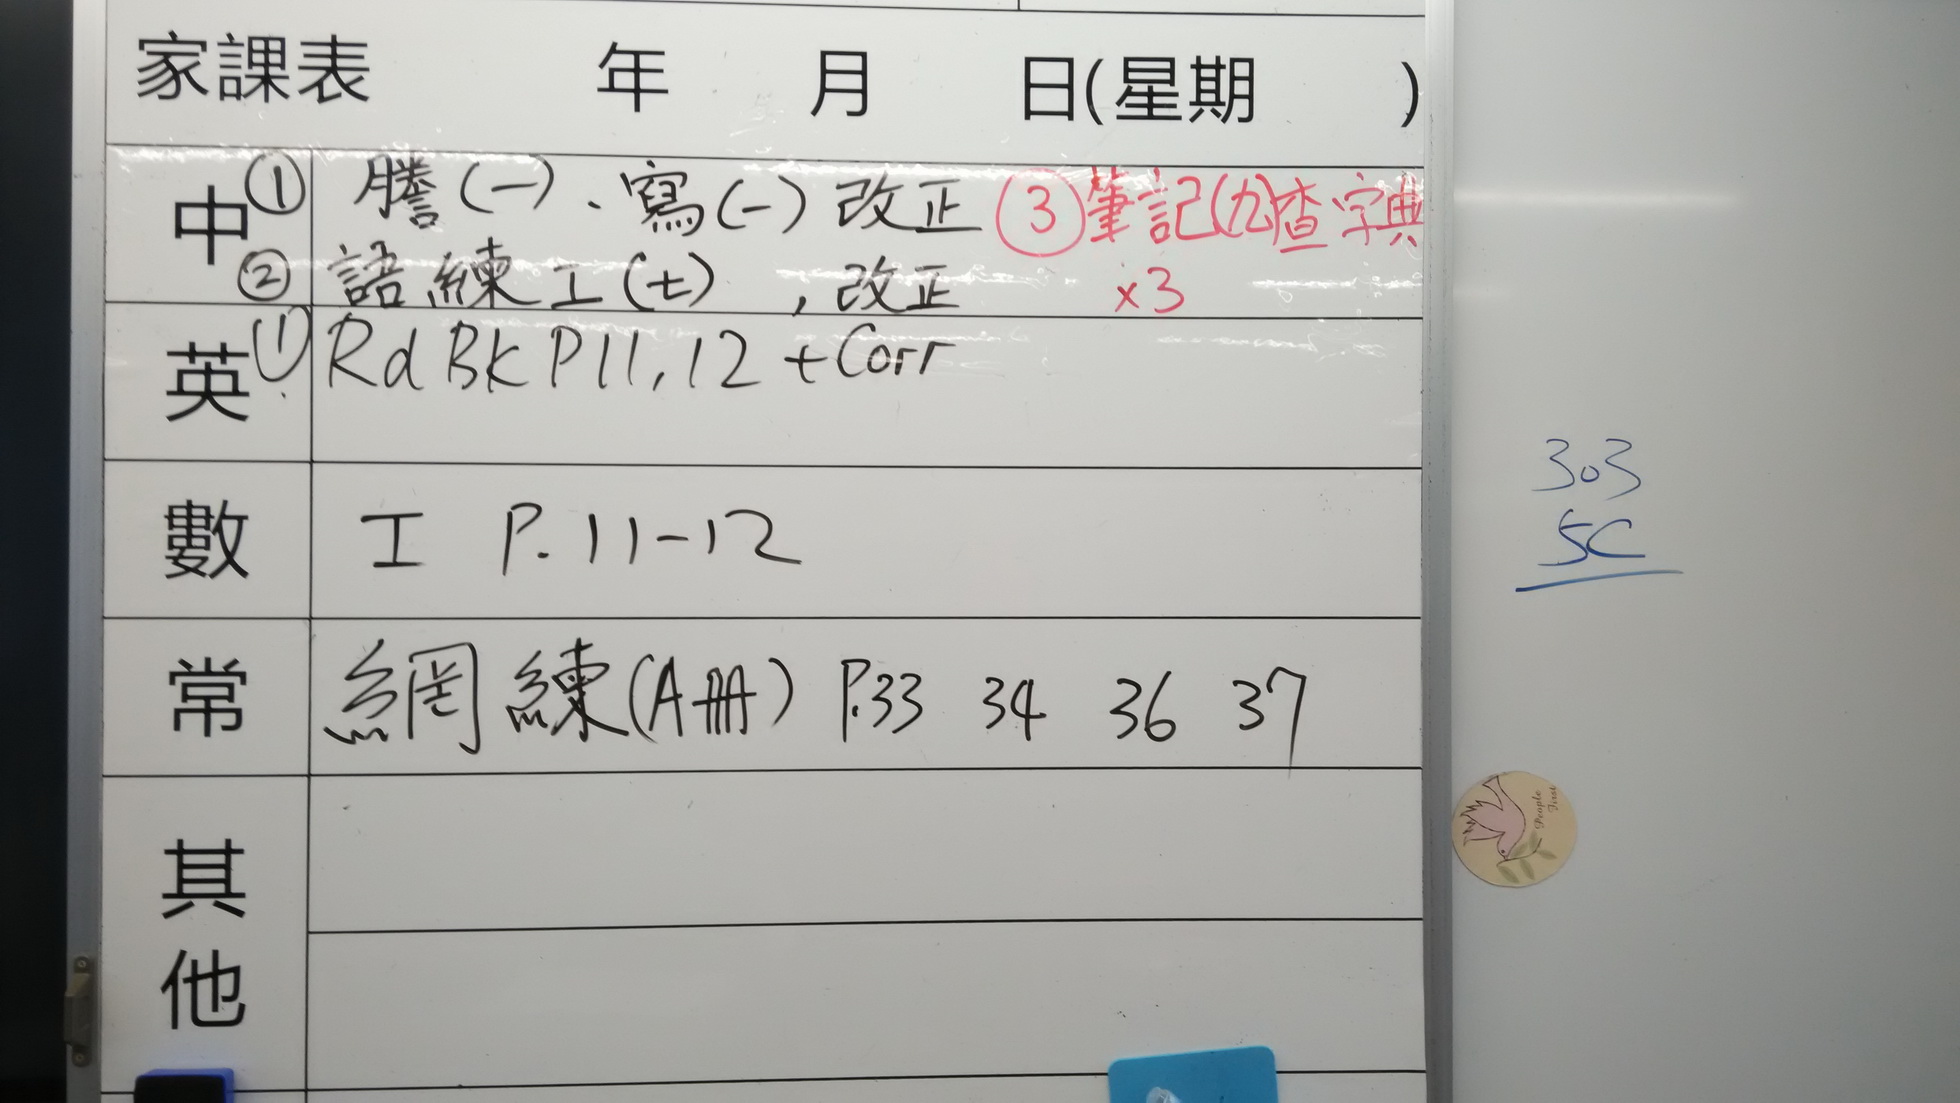 家課表 年 月 日(星期 )
中 ① 謄(一)、寫(一)改正 ③筆記(九)查字典
② 語練工(七),改正 ×3
英 ① Rd Bk P11,12 +Corr
數 工 P.11-12
常 網練(A冊) P.33 34 36 37
其他
303
5C
People First